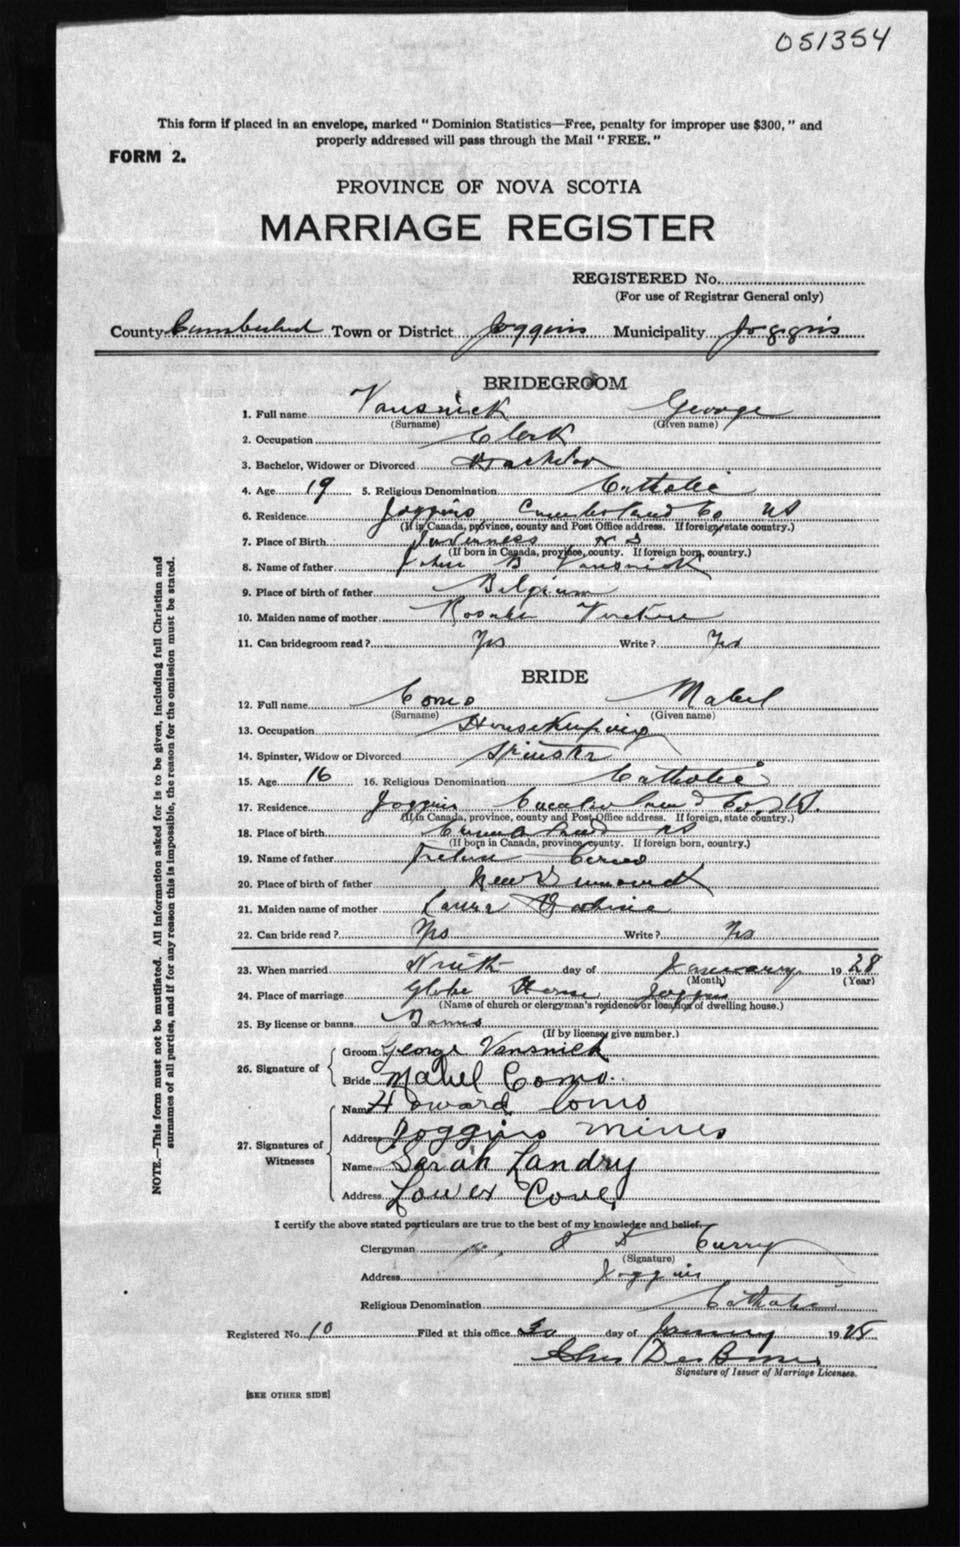 051354
This form if placed in an envelope, marked " Dominion Statistics—Free, penalty for improper use $300, " and
properly addressed will pass through the Mail " FREE. "
FORM 2.
PROVINCE OF NOVA SCOTIA
MARRIAGE REGISTER
REGISTERED No.
(For use of Registrar General only)
County Cumberland Town or District Joggins Municipality Joggins
BRIDEGROOM
1. Full name Vansnick George
(Surname) (Given name)
2. Occupation Clerk
3. Bachelor, Widower or Divorced Bachelor
4. Age 19 5. Religious Denomination Catholic
6. Residence Joggins Cumberland Co NS
(If in Canada, province, county and Post Office address. If foreign, state country.)
7. Place of Birth Inverness N S
(If born in Canada, province, county. If foreign born, country.)
8. Name of father John B Vansnick
9. Place of birth of father Belgium
10. Maiden name of mother
11. Can bridegroom read? Yes Write? Yes
BRIDE
12. Full name Como Mabel
(Surname) (Given name)
13. Occupation Housekeeping
14. Spinster, Widow or Divorced Spinster
15. Age 16 16. Religious Denomination Catholic
17. Residence Joggins Cumberland Co. NS.
(If in Canada, province, county and Post Office address. If foreign, state country.)
18. Place of birth Cumberland NS
(If born in Canada, province, county. If foreign born, country.)
19. Name of father Como
20. Place of birth of father New Brunswick
21. Maiden name of mother
22. Can bride read? Yes Write? Yes
23. When married Ninth day of January 1928
(Month) (Year)
24. Place of marriage Glebe House Joggins
(Name of church or clergyman's residence or location of dwelling house.)
25. By license or banns Banns
(If by license, give number.)
26. Signature of Groom George Vansnick
Bride Mabel Como.
27. Signatures of Witnesses Name Howard Como
Address Joggins Mines
Name Sarah Landry
Address Lower Cove
I certify the above stated particulars are true to the best of my knowledge and belief.
Clergyman Curry
(Signature)
Address Joggins
Religious Denomination Catholic
Registered No. 10 Filed at this office 30 day of January 1928
Signature of Issuer of Marriage Licenses.
[SEE OTHER SIDE]
NOTE.—This form must not be mutilated. All information asked for is to be given, including full Christian and
surnames of all parties, and if for any reason this is impossible, the reason for the omission must be stated.